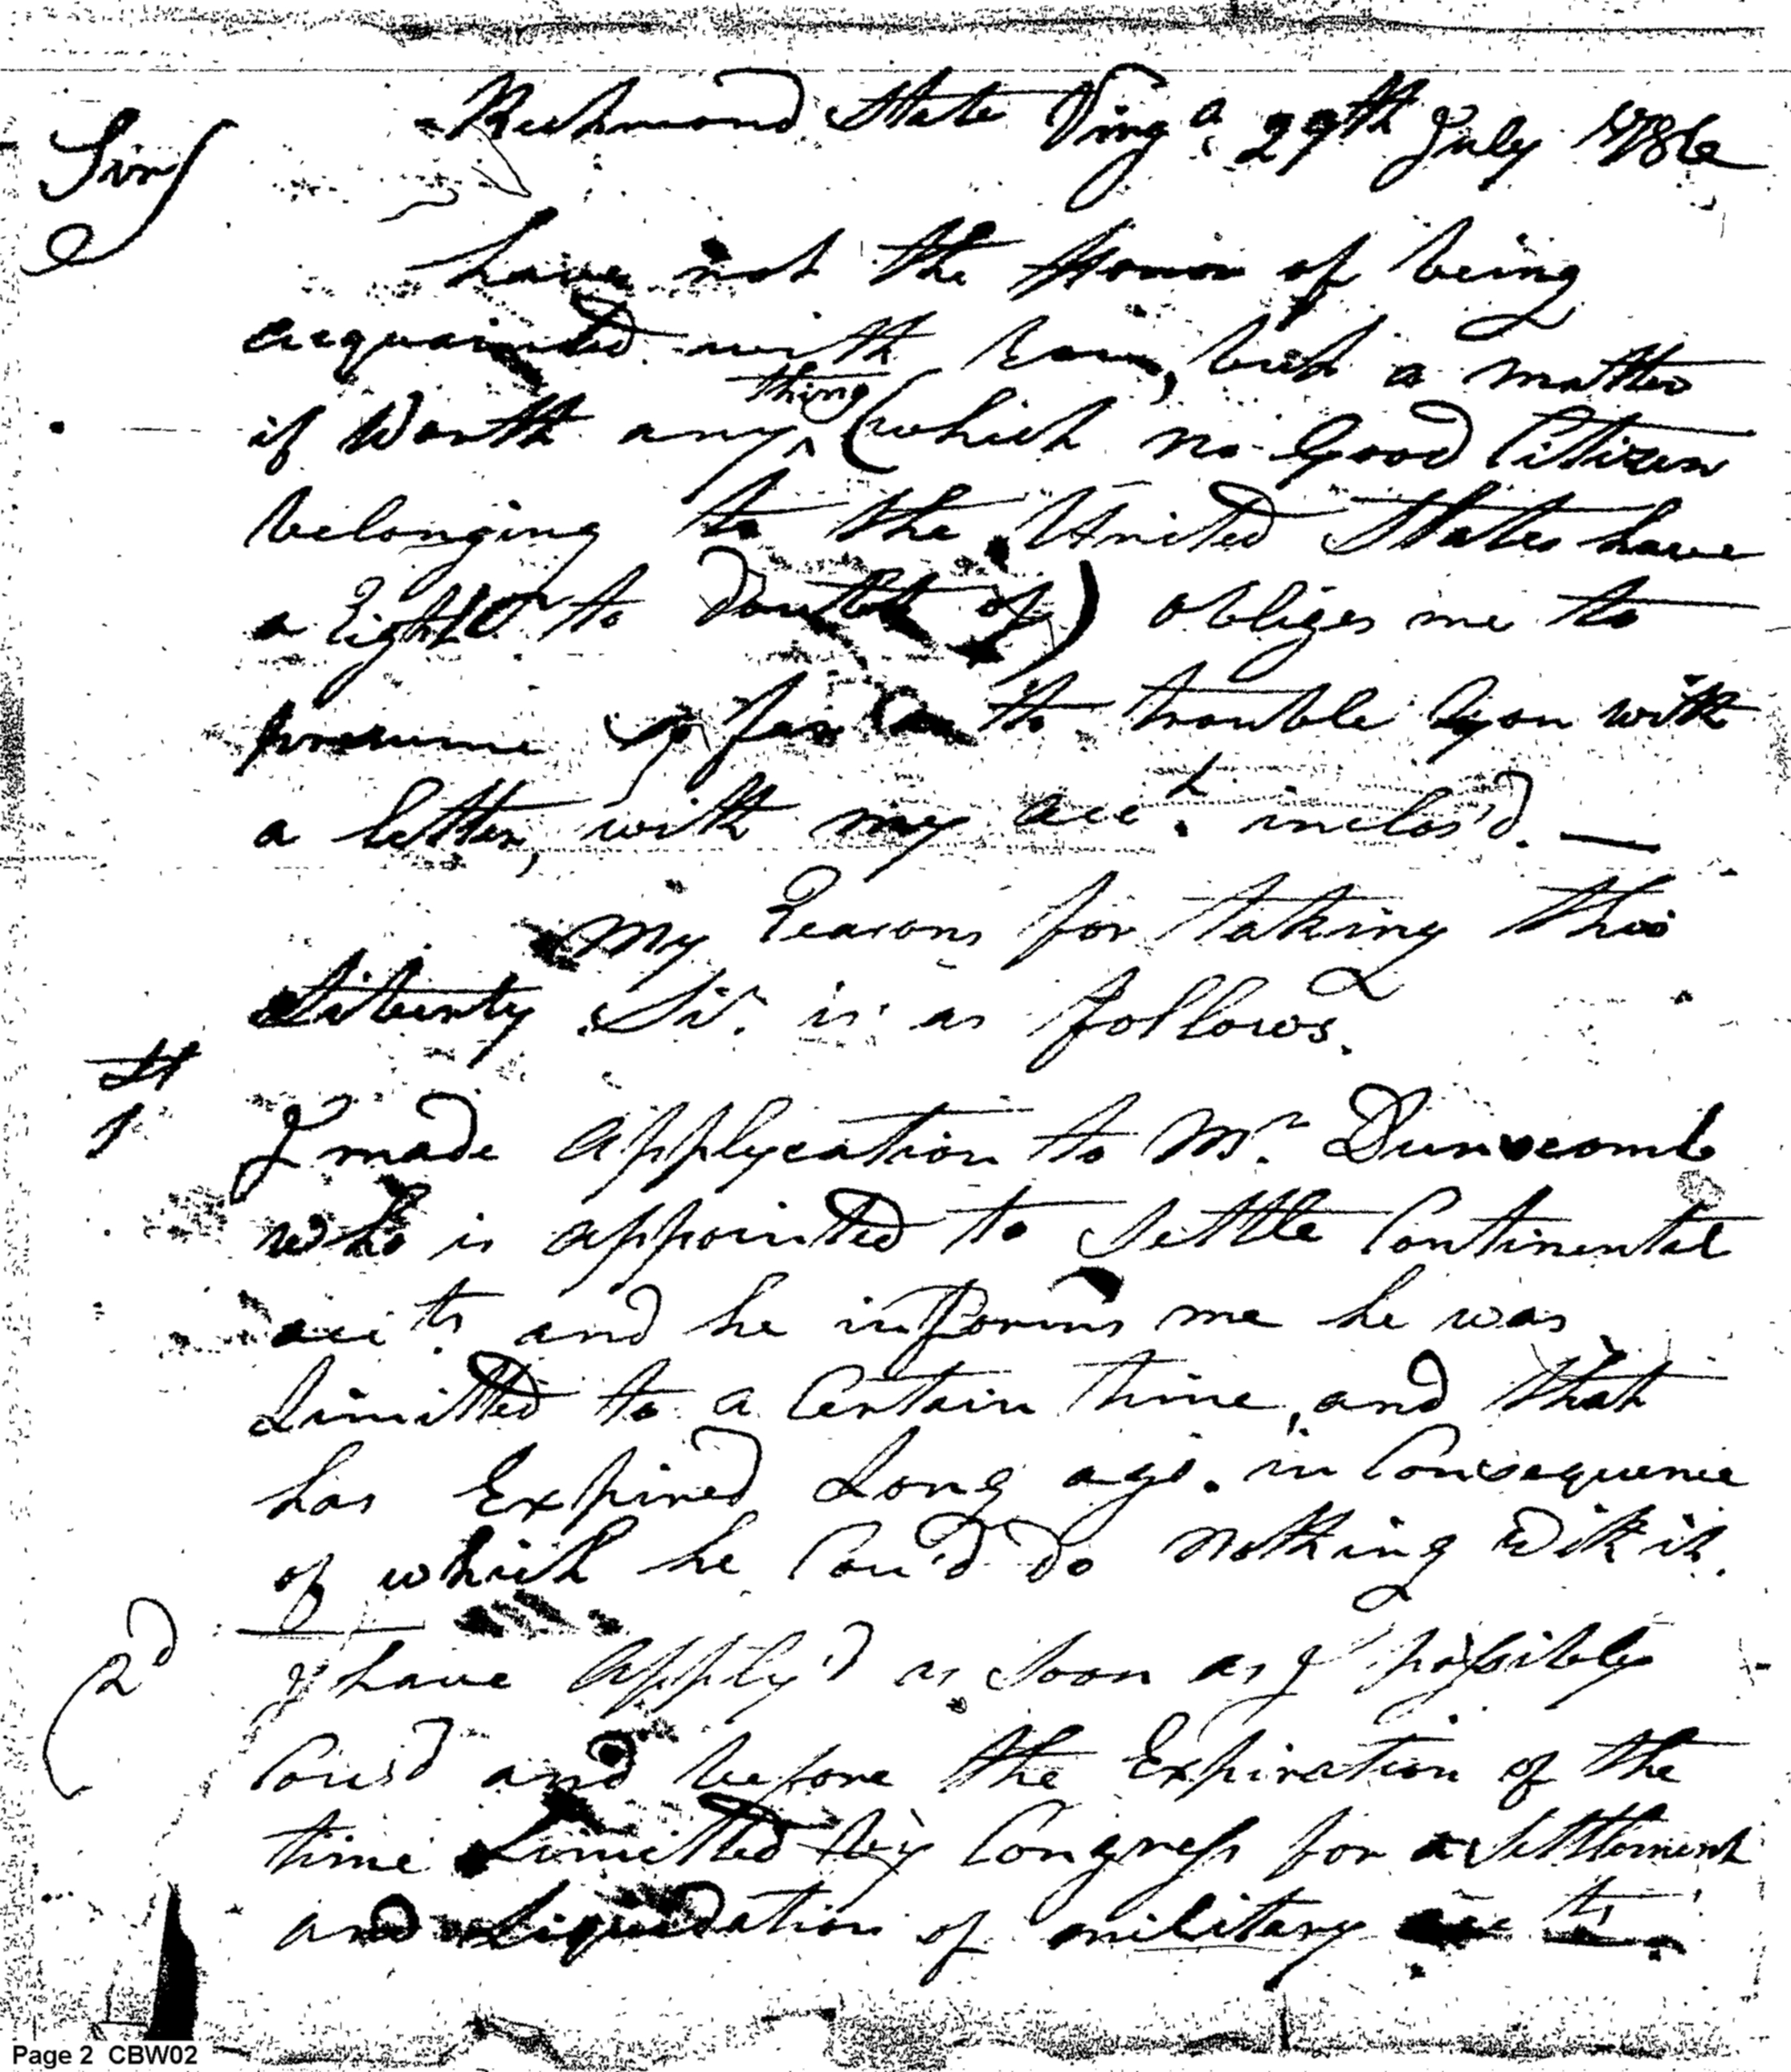 Richmond State Virga. 29th July 1786
Sir/
have not the Honor of being
acquainted with him, but a matter
if Worth any thing (which no Good Citizen
belonging to the United States have
a Right to doubt of) obliges me to
presume so far as to trouble you with
a letter, with my acct. inclos'd. —
My Reasons for taking this
Liberty Sir. is as follows.
1st
I made applycation to Mr. Dunscomb
who is appointed to Settle Continental
accts. and he informs me he was
Limitted to a Certain time, and that
has Expired Long ago. in Consequence
of which he Cou'd do nothing with it.
2d
I have apply'd as Soon as I possibly
Cou'd and before the Expiration of the
time Limitted by Congress for a Settlement
and Liquidation of military accts.
Page 2 CBW02